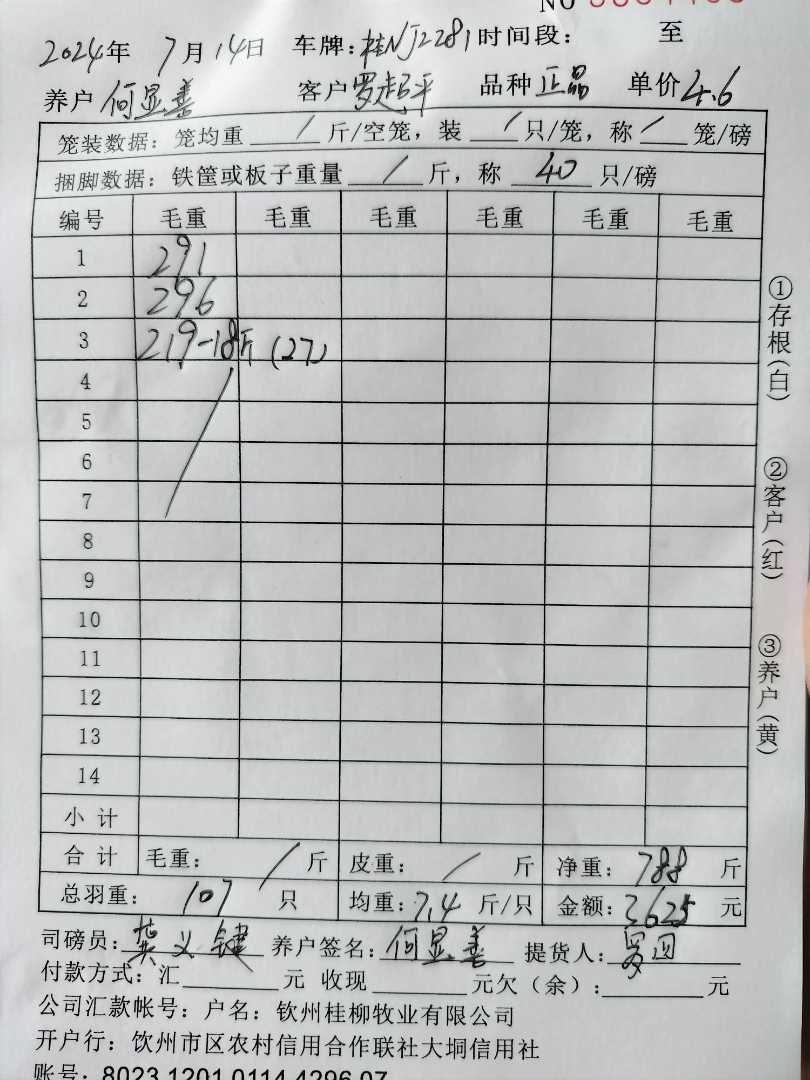 NO
2024年 7月14日 车牌:桂NJ2281 时间段: 至
养户 何显善 客户 罗超平 品种 正品 单价 4.6
笼装数据: 笼均重 / 斤/空笼, 装 / 只/笼, 称 / 笼/磅
捆脚数据: 铁筐或板子重量 / 斤, 称 40 只/磅
编号 毛重 毛重 毛重 毛重 毛重 毛重
1 291
2 296
3 219-18斤 (27)
4
5
6
7
8
9
10
11
12
13
14
小计
合计 毛重: / 斤 皮重: / 斤 净重: 788 斤
总羽重: 107 只 均重: 7.4 斤/只 金额: 3625 元
司磅员: 黄义键 养户签名: 何显善 提货人: 罗
付款方式: 汇 元 收现 元欠(余): 元
公司汇款帐号: 户名: 钦州桂柳牧业有限公司
开户行: 饮州市区农村信用合作联社大垌信用社
账号: 8023 1201 0114 4296 07
①存根(白)
②客户(红)
③养户(黄)